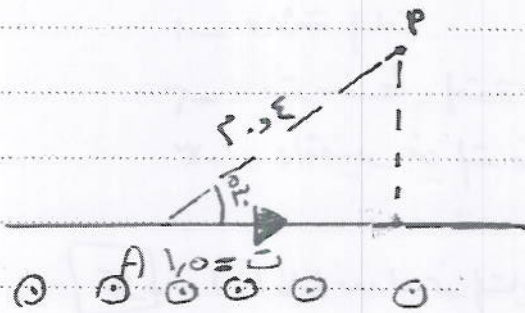 P
٠,٤ م
٣٠°
ت = ١,٥ A